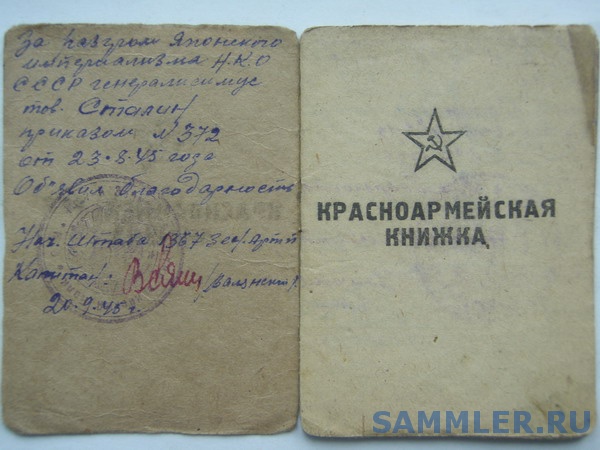 За разгром Японского
империализма Н.К.О
СССР генералисимус
тов. Сталин
приказом № 372
от 23-8-45 года
Об"явил благодарность
Нач. Штаба 1367 Зен. Арт. п
Капитан:
20.9.45 г.
КРАСНОАРМЕЙСКАЯ
КНИЖКА
SAMMLER.RU